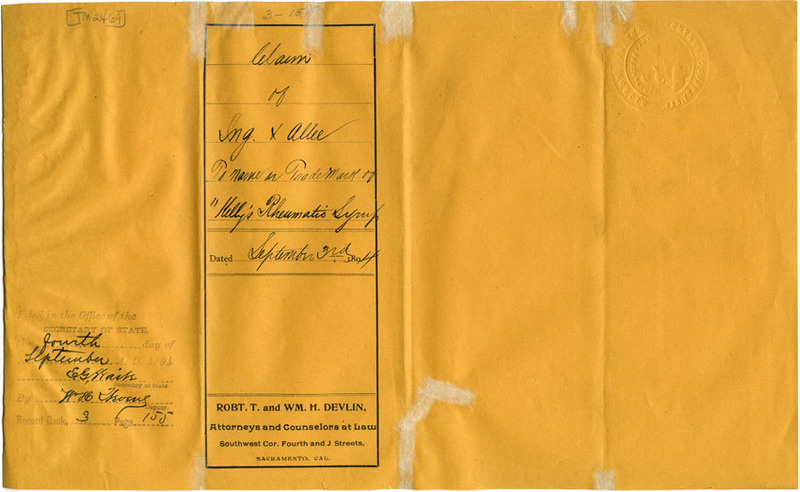 3 - 15
Claim
of
Ing. & Allee
To name or Trade Mark of
"Kelly's Rheumatic Syrup
Dated September 3rd 1894
Filed in the Office of the
SECRETARY OF STATE
fourth day of
September A. D. 1894
E G Waite
Secretary of State
By W. H.
Deputy
Record Book, 3 Page, 155
ROBT. T. and WM. H. DEVLIN,
Attorneys and Counselors at Law
Southwest Cor. Fourth and J Streets,
SACRAMENTO, CAL.